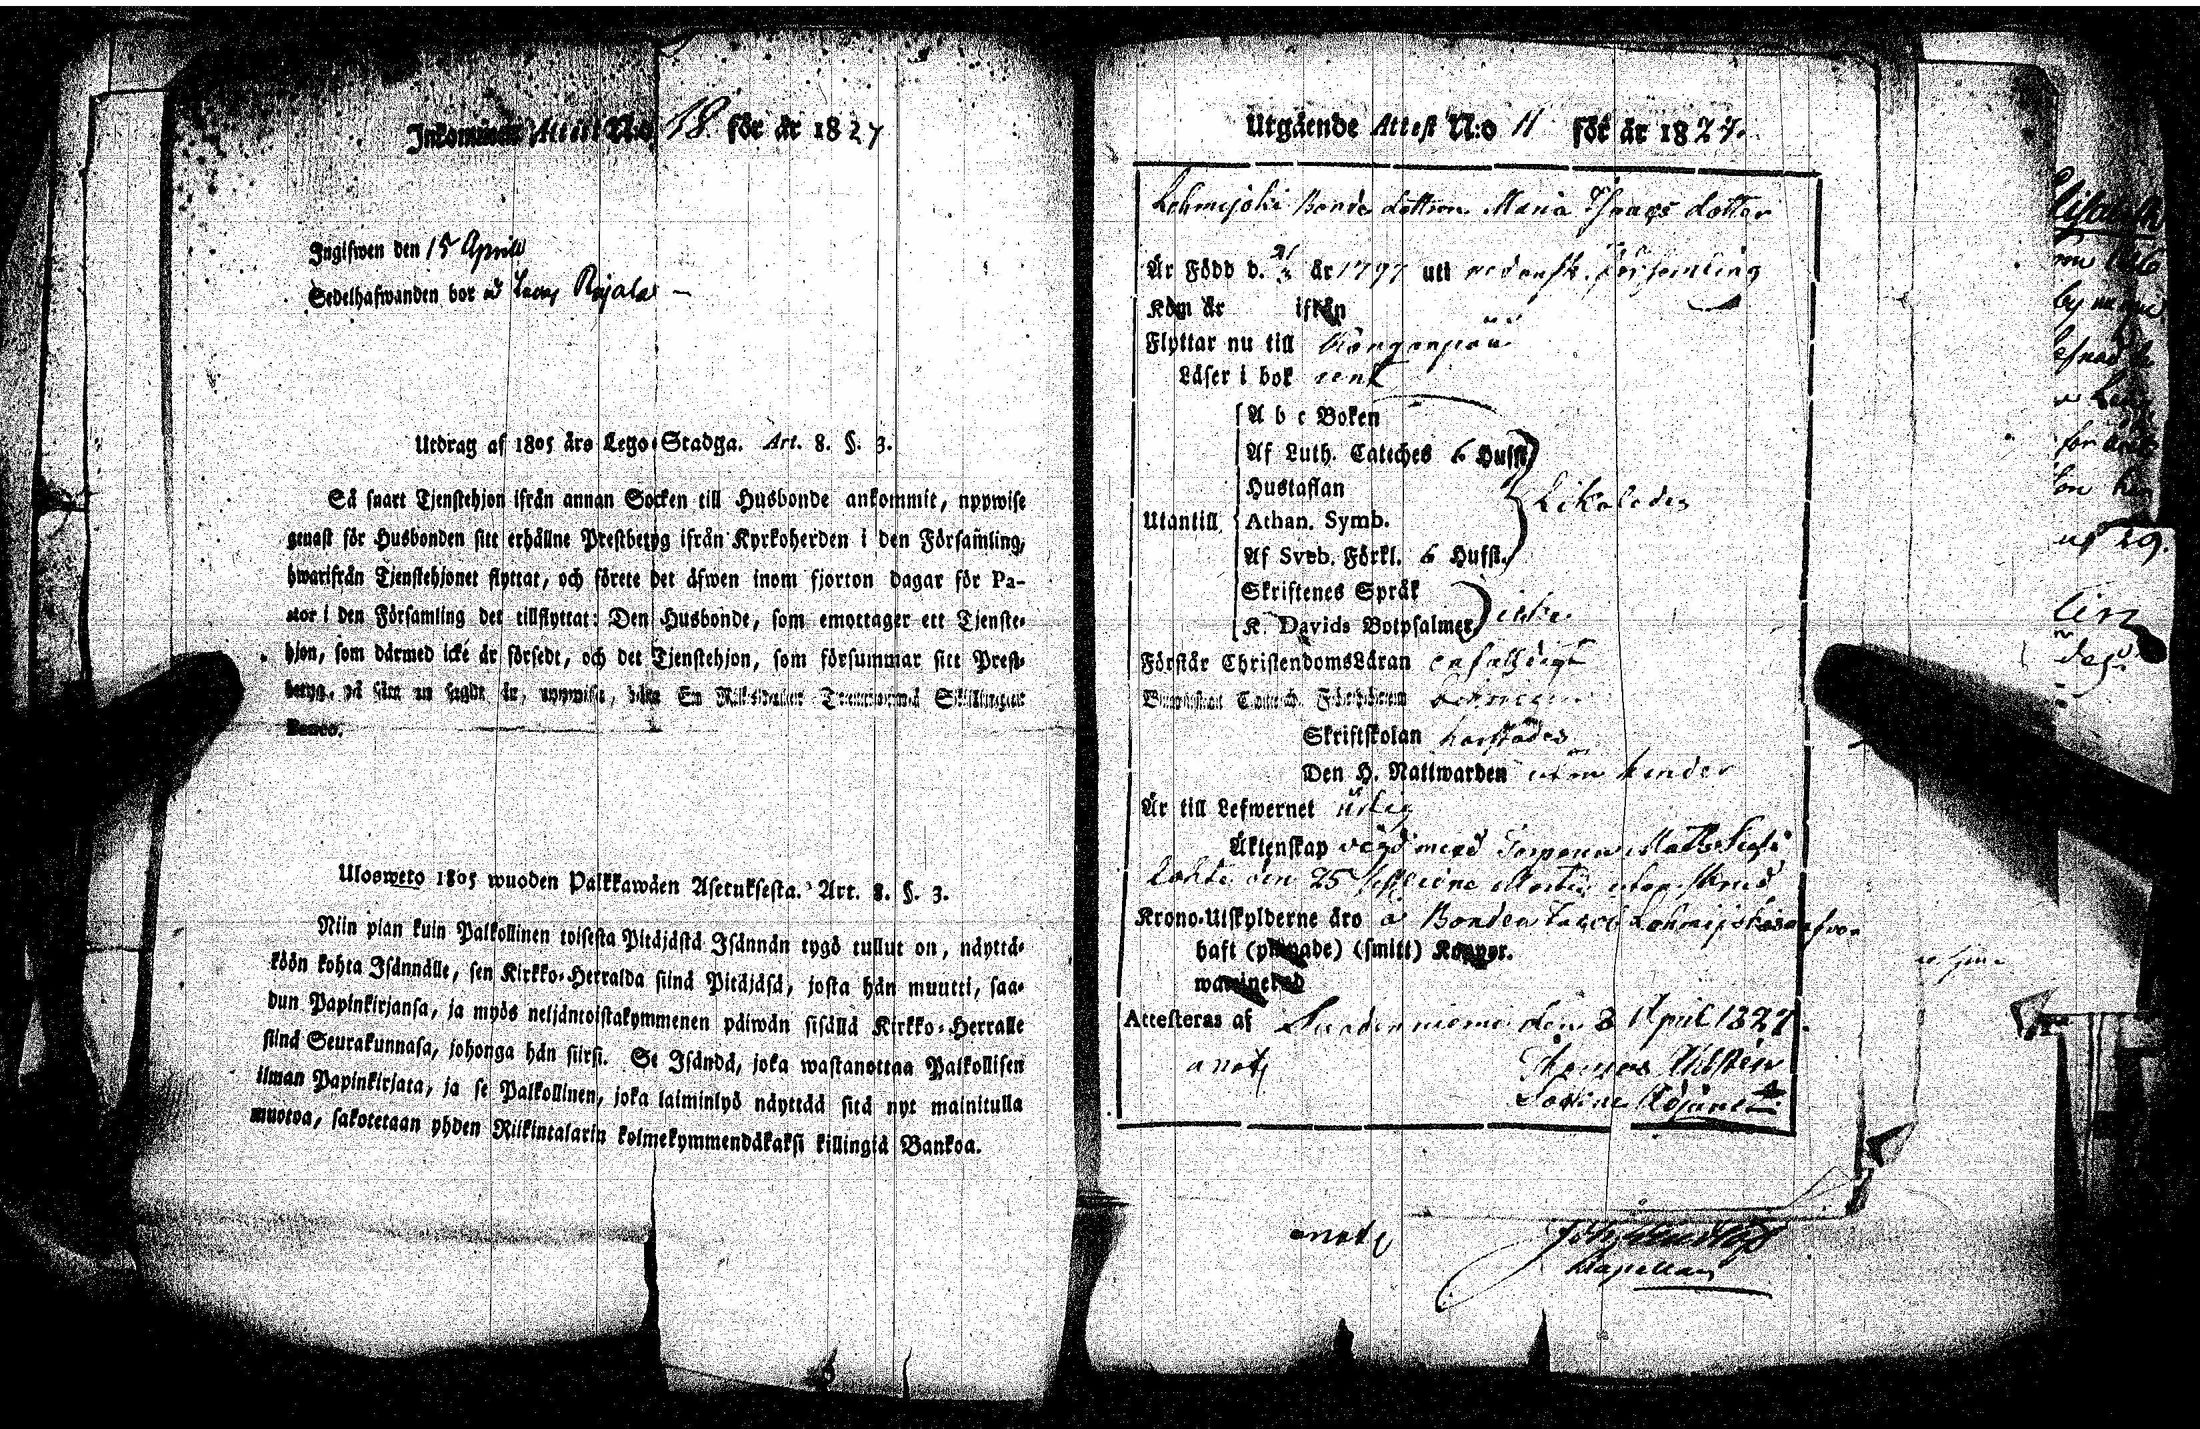 Inkommen Attest N:o 18 för år 1827
Ingifwen den 15 Aprill
Sedelhafwanden bor Rajala
Utdrag af 1805 års Lego-Stadga. Art. 8. §. 3.
Så snart Tjenstehjon ifrån annan Socken till Husbonde ankommit, uppwise
genast för Husbonden sitt erhållne Prestbetyg ifrån Kyrkoherden i den Församling,
hwarifrån Tjenstehjonet flyttat, och förete det äfwen inom fjorton dagar för Pa-
stor i den Församling det tillflyttat: Den Husbonde, som emottager ett Tjenste-
hjon, som därmed icke är försedt, och det Tjenstehjon, som försummar sitt Prest-
betyg, på sätt nu sagdt är, uppwisa, böte En Riksdaler Trettiotwå Skillingar
Banco.
Ulosweto 1805 wuoden Palkkawäen Asetuksesta. Art. 8. §. 3.
Niin pian kuin Palkollinen toisesta Pitäjästä Isännän tygö tullut on, näyttä-
köön kohta Isännälle, sen Kirkko-Herralda siinä Pitäjäsä, josta hän muutti, saa-
dun Papinkirjansa, ja myös neljäntoistakymmenen päiwän sisällä Kirkko-Herralle
siinä Seurakunnasa, johonga hän siirsi. Se Isändä, joka wastanottaa Palkollisen
ilman Papinkirjata, ja se Palkollinen, joka laiminlyö näyttää sitä nyt mainitulla
muotoa, sakotetaan yhden Riikintalarin kolmekymmendäkaksi killingiä Bankoa.
Utgående Attest N:o 11 för år 1827.
Lohmijoki Bonde dottren Maria Isaacs dotter
Är Född d. år 1797 uti nedansk. Församling
Kom år ifrån
Flyttar nu till Kanganpää
Läser i bok rent
A b c Boken
Af Luth. Cateches 6 Hufst.
Hustaflan
Utantill Athan. Symb.
Af Sveb. Förkl. 6 Hufst.
Likaledes
Skriftenes Språk
K. Davids Botpsalmer icke
Förstår ChristendomsLäran enfaldigt
Skriftskolan
Den H. Nattwarden utan hinder
Är till Lefwernet ärlig
Äktenskap med
den 25
Krono-Utskylderne äro Bonden Jacob
haft (smitt) Koppor.
Attesteras af Suodenniemi den 8 April 1827.
Thomas
anot
Kapellan